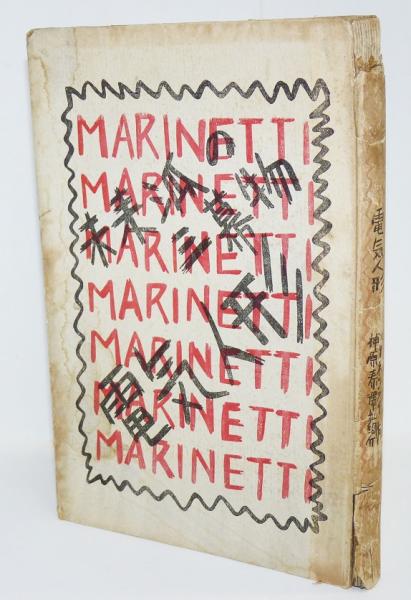 MARINETTI
MARINETTI
MARINETTI
MARINETTI
MARINETTI
MARINETTI
MARINETTI
未来派の
三幕物
電気人形
電気人形
神原泰